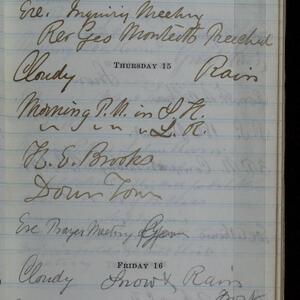 Eve. Inquiry Meeting
Rev Geo Monteith Preached
THURSDAY 15
Cloudy Rain
Morning P.M. in S. H.
" " in " L. H.
H. E. Brooks
Down Town
Eve Prayer Meeting
FRIDAY 16
Cloudy Snow & Rain